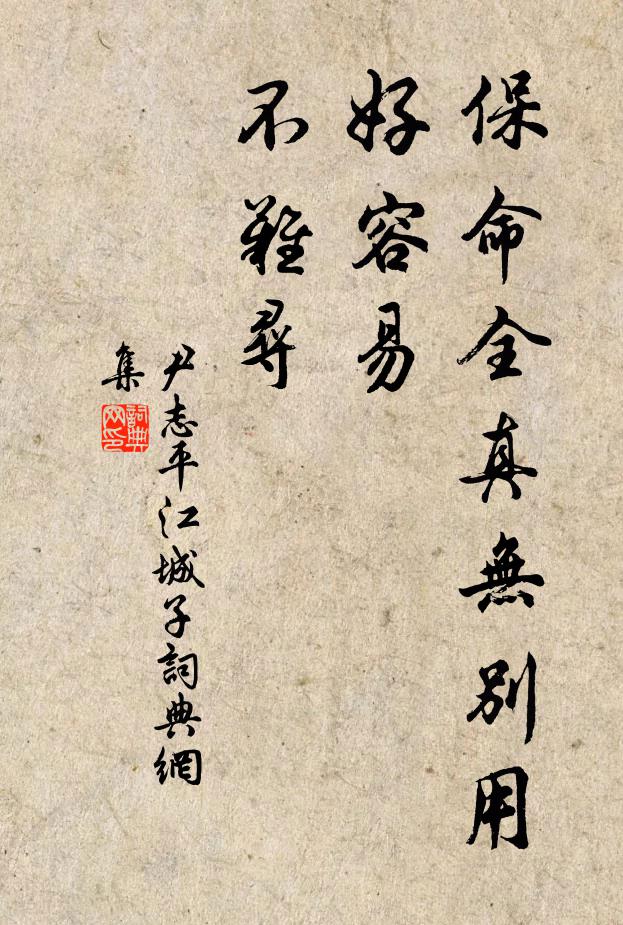 保命全真無別用
好容易
不難尋
尹志平江城子詞典網
集
詞典
网印